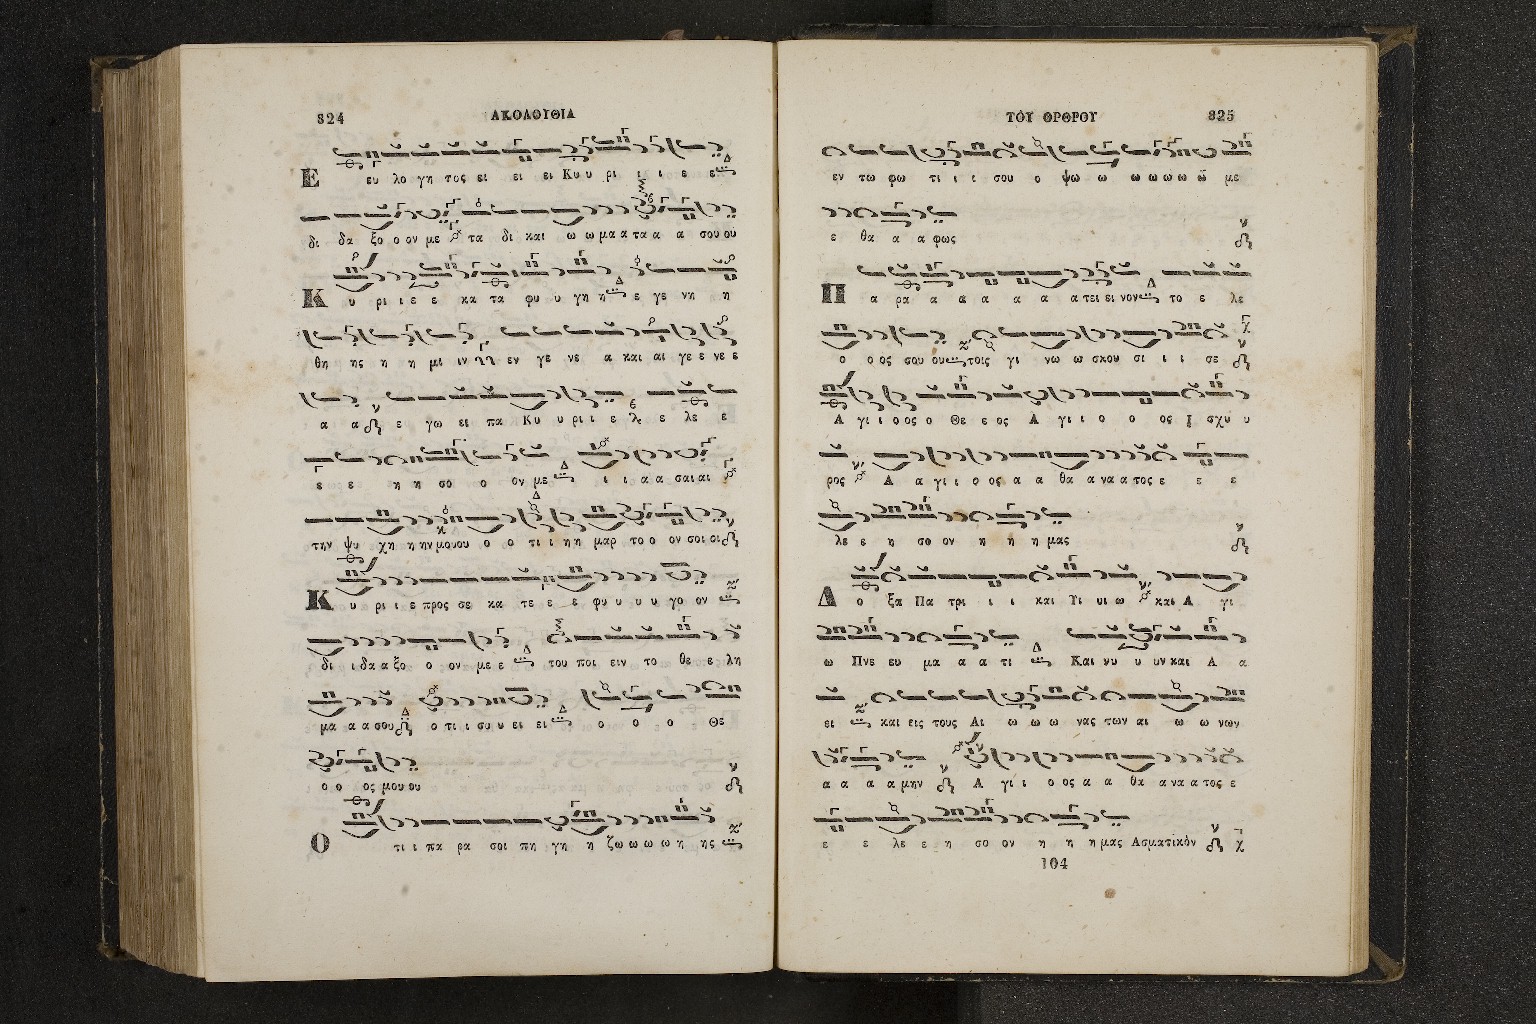 824 ΑΚΟΛΟΥΘΙΑ
Ε ευ λο γη τος ει ει ει Κυ υ ρι ι ι ε ε
δι δα ξο ο ον με τα δι και ω ω μα α τα α α σου ου
Κ υ ρι ι ε ε κα τα φυ υ γη η ε γε νη η
θη ης η η μι ιν εν γε νε α και αι γε ε νε ε
α α ε γω ει πα Κυ υ ρι ι ε λε ε λε ε
ε ε η η σο ο ον με ι ι α α σαι αι
την ψυ χη η ην μου ου ο ο τι ι η η μαρ το ο ον σοι οι
Κ υ ρι ι ε προς σε κα τε ε ε φυ υ υ υ γο ον
δι ι δα α ξο ο ον με ε του ποι ειν το θε ε λη
μα α α σου ο τι συ υ ει ει ο ο ο Θε
ο ο ος μου ου
Ο τι ι πα ρα σοι πη γη η ζω ω ω ω η ης
ΤΟΥ ΟΡΘΡΟΥ 825
εν τω φω τι ι ι σου ο ψω ω ω ω ω ω ω με
ε θα α α φως
Π α ρα α α α α α α τει ει νον το ε λε
ο ο ος σου ου τοις γι νω ω σκου σι ι ι σε
Α γι ι ο ος ο Θε ε ος Α γι ι ο ο ος Ι σχυ υ
ρος Α α γι ι ο ος α α θα α να α τος ε ε ε
λε ε η σο ον η η η μας
Δ ο ξα Πα τρι ι ι και Υι υι ω και Α γι
ω Πνε ευ μα α α τι Και νυ υ υν και Α α
ει και εις τους Αι ω ω ω νας των αι ω ω νων
α α α α μην Α γι ι ο ος α α θα α να α τος ε
ε ε λε ε η σο ον η η η μας Ασματικὸν χ
104